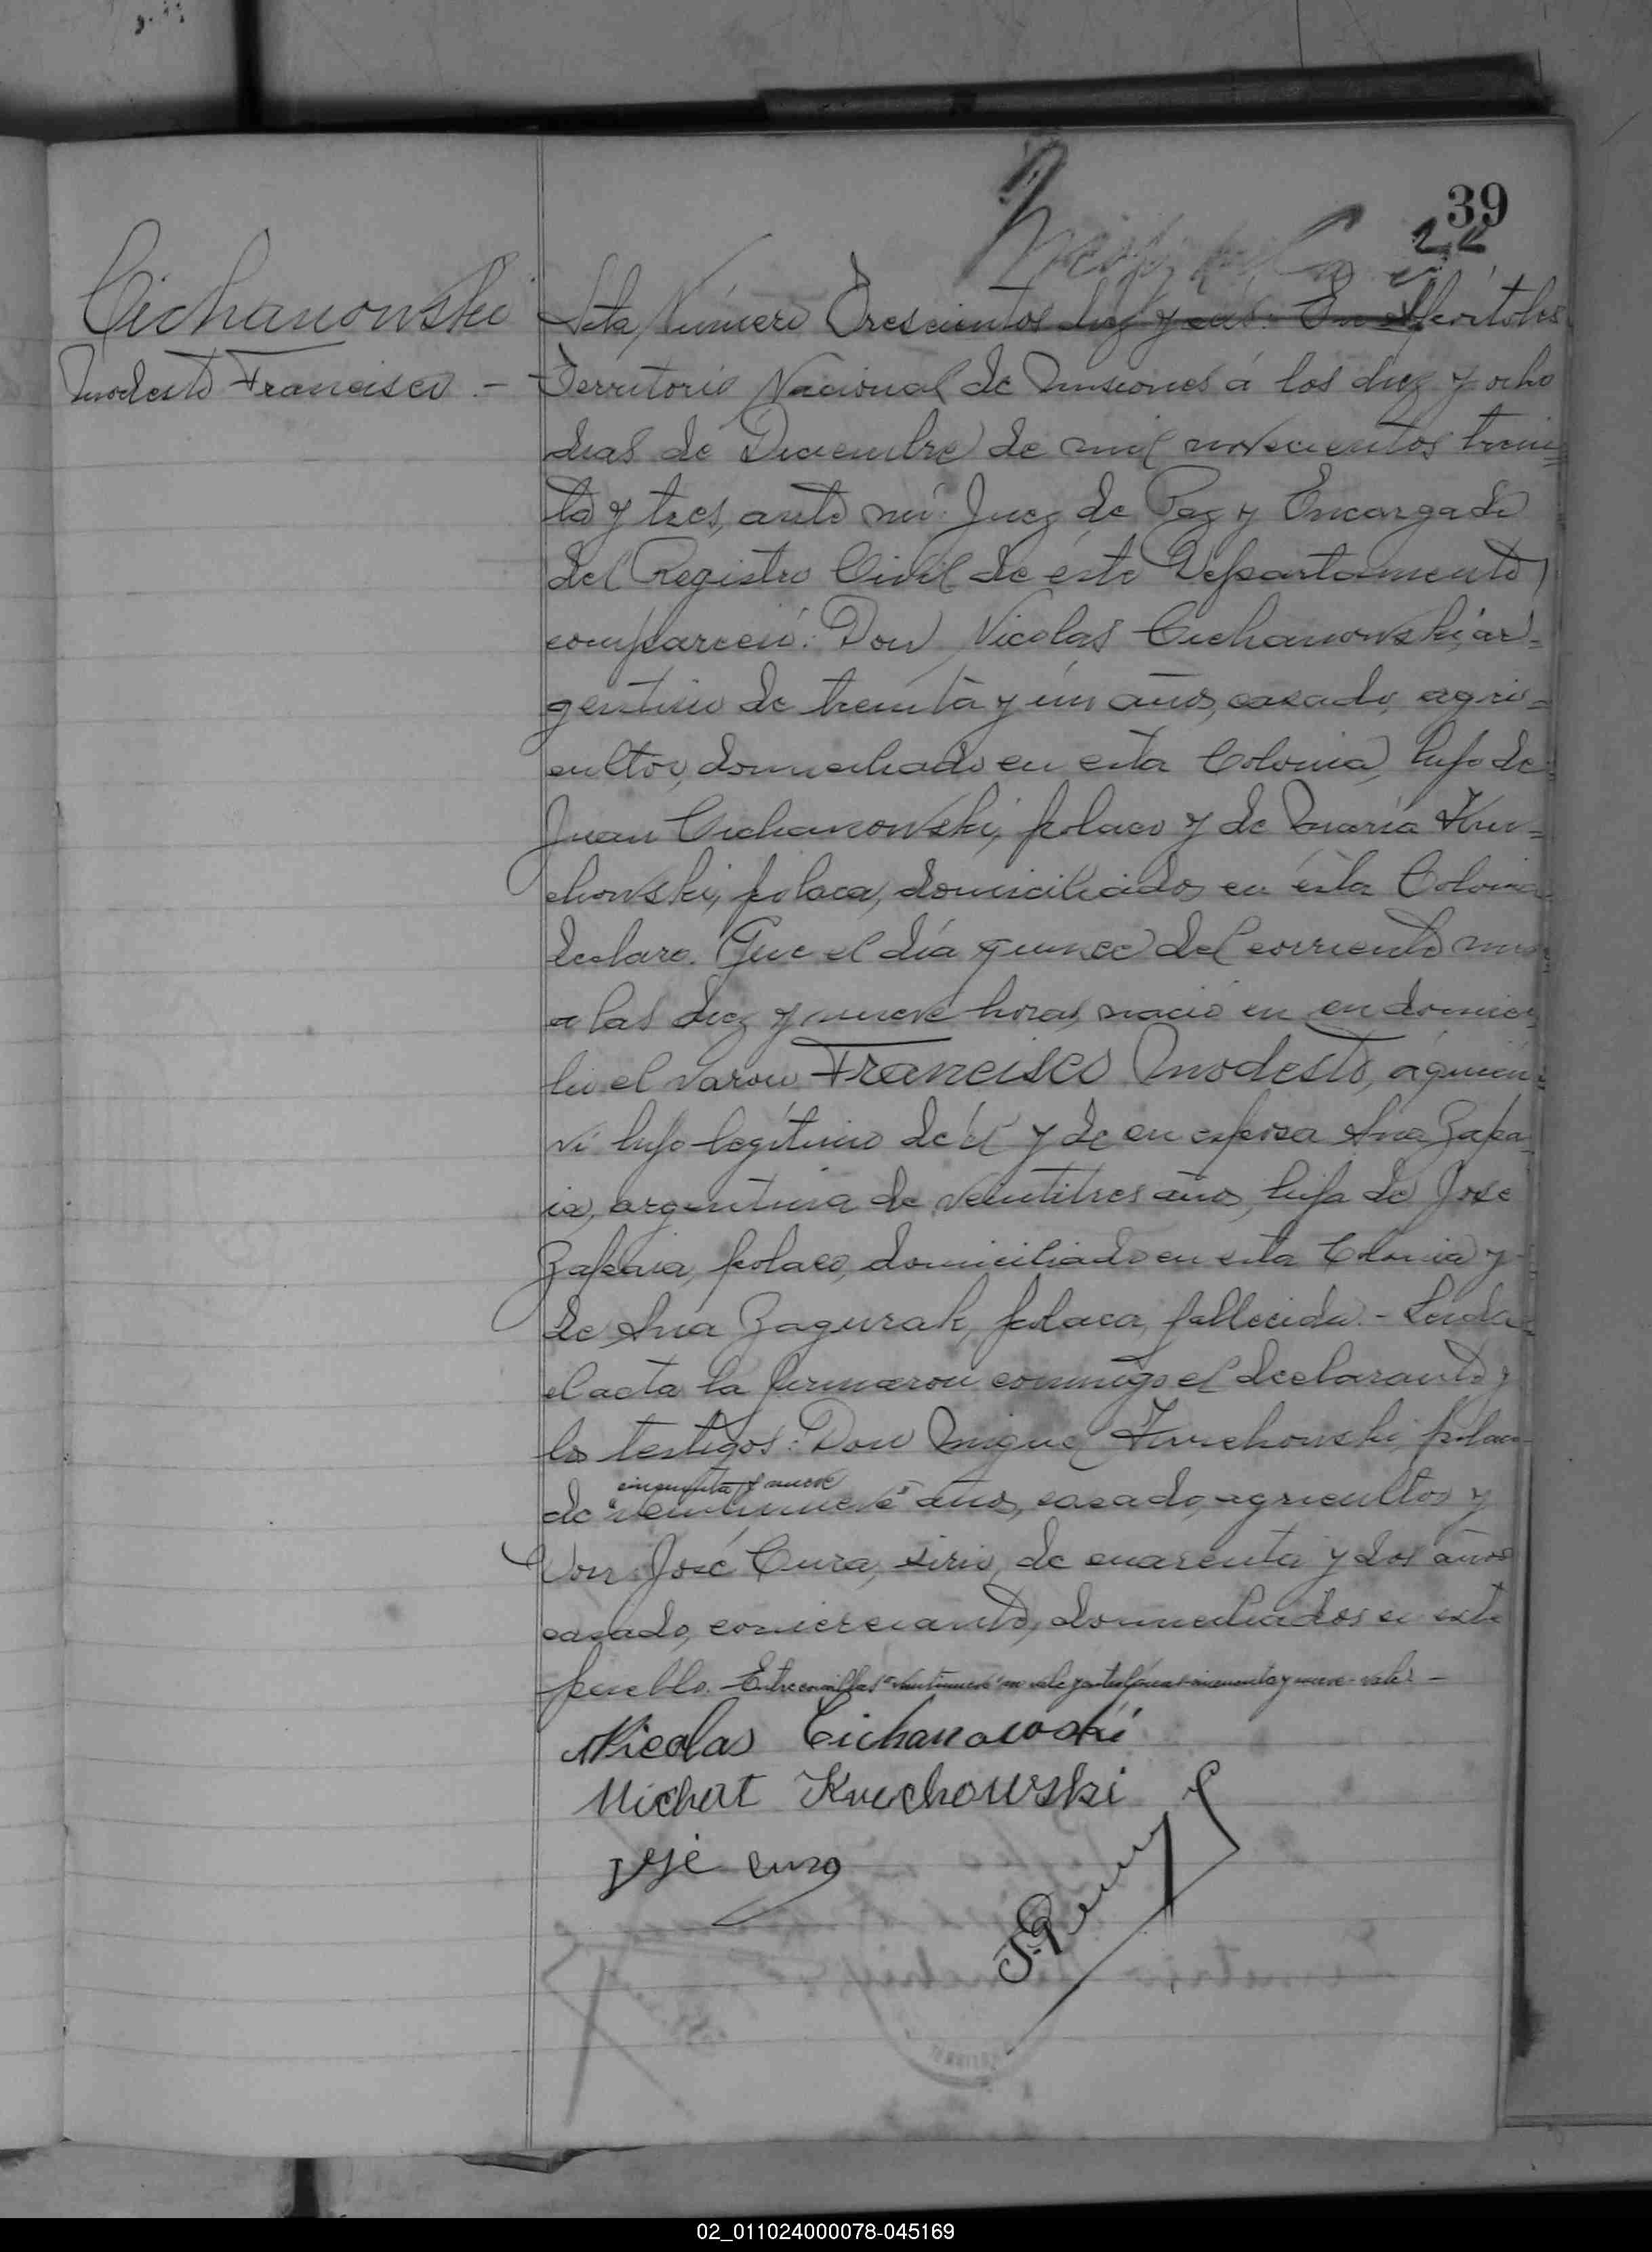 39
22
Cichanowski
Modesto Francisco.-
Acta Número Trescientos diez y seis. En Apóstoles
Territorio Nacional de Misiones á los diez y ocho
dias de Diciembre de mil novecientos trein=
ta y tres, ante mi Juez de Paz y Encargado
del Registro Civil de éste Departamento,
compareció: Don Nicolas Cichanowski, ar=
gentino de treinta y un años, casado, agri=
cultor, domiciliado en esta Colonia, hijo de
Juan Cichanowski, polaco y de María Kru=
chowski, polaca, domiciliados en ésta Colonia
declaro. Que el día quince del corriente mes
a las diez y nueve horas, nació en su domici=
lio el varon Francisco Modesto, á quien
vi hijo legítimo de él y de su esposa Ana Zapa
ia, argentina de veintitres años, hija de Jose
Zapaia, polaco, domiciliado en esta Colonia y
de Ana Zagurak, polaca, fallecida.- Leida
el acta la firmaron conmigo el declarante y
los testigos: Don Miguel Kruchowski, polaco
cincuenta y nueve
de "veintinueve" años, casado, agricultor y
Don José Cura, sirio, de cuarenta y dos años
casado, comerciante, domiciliados en este
pueblo. Entrecomillas "veintinueve" no vale y entrelíneas cincuenta y nueve - vale.-
Nicolas Cichanowski
Michał Kruchowski
José Cura